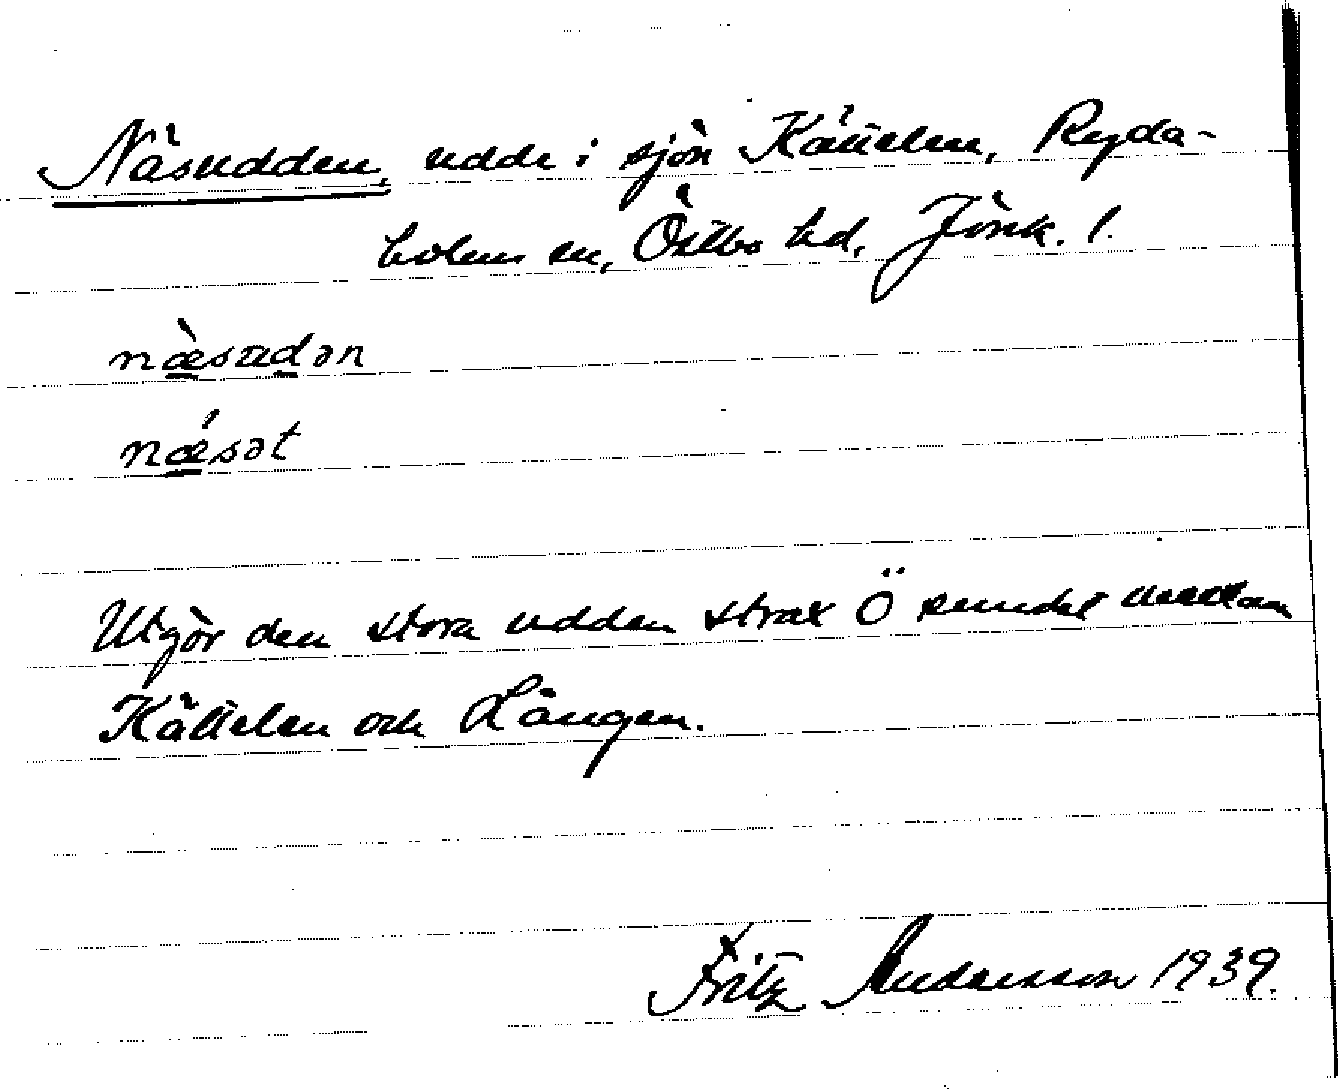 Näsudden, udde i sjön Kättelen, Ryda-
holms sn, Östbo hd, Jönk. l.
næ̀sudən
nǽsət
Utgör den stora udden strax Ö sundet mellan
Kättelen och Lången.
Fritz Andersson 1939.